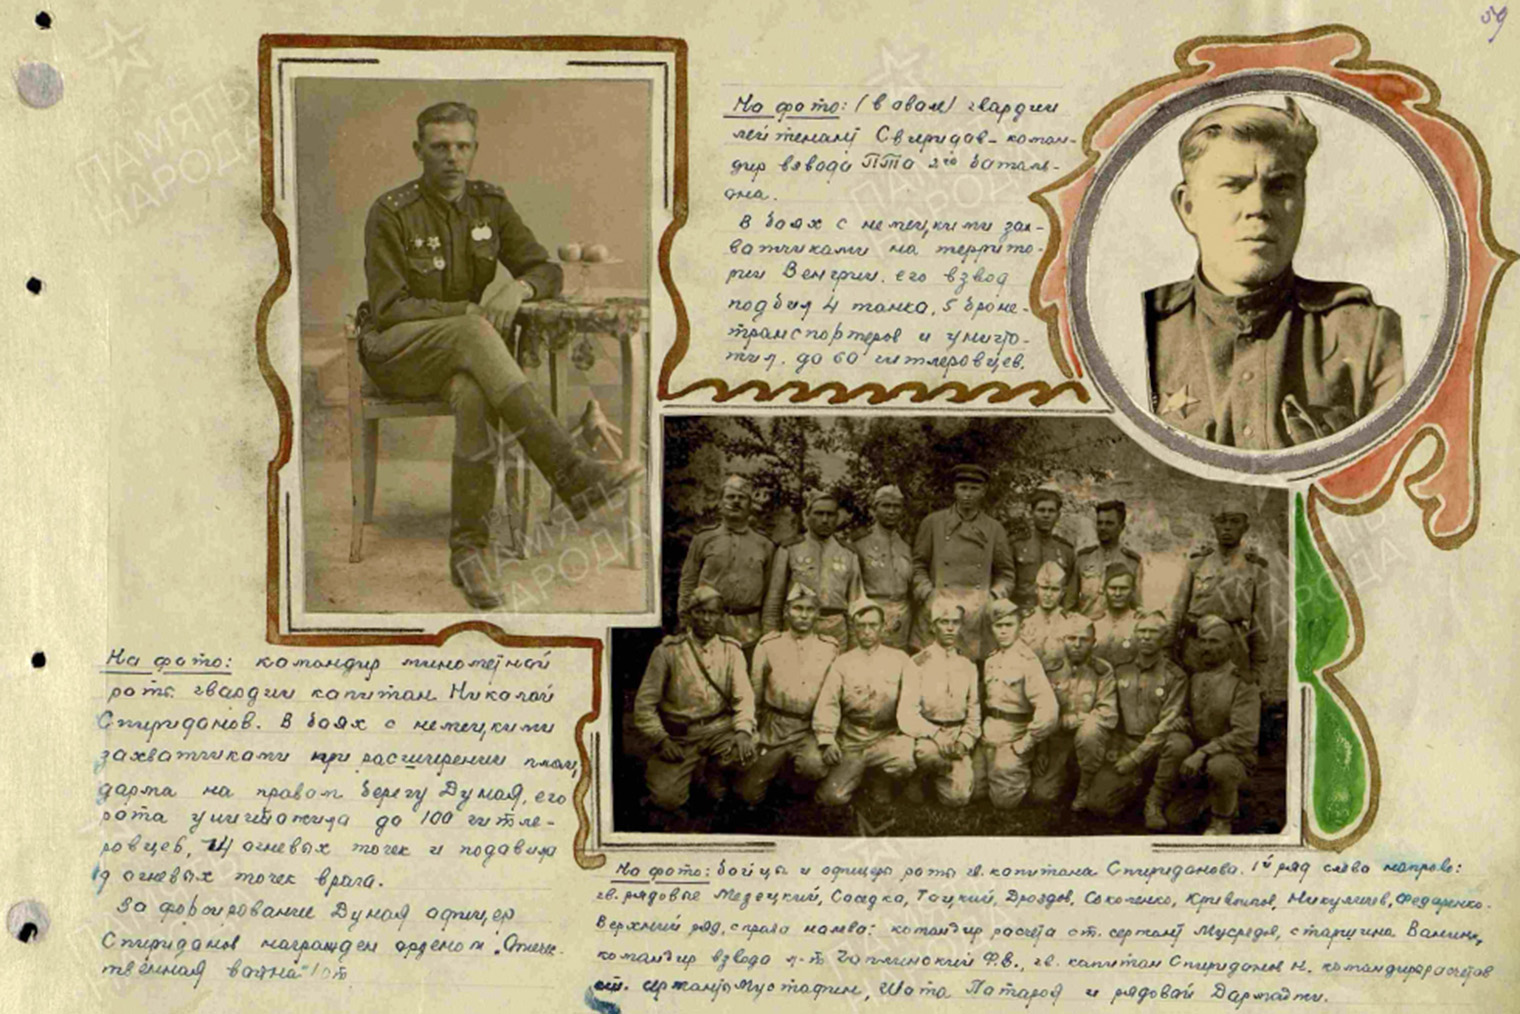 59
На фото: (в овале) гвардии
лейтенант Свиридов - коман-
дир взвода ПТО 2го баталь-
она.
В боях с немецкими зах-
ватчиками на террито-
рии Венгрии, его взвод
подбил 4 танка, 5 броне-
транспортеров и уничто-
жил до 60 гитлеровцев.
На фото: командир минометной
роты гвардии капитан Николай
Спиридонов. В боях с немецкими
захватчиками при расширении плац-
дарма на правом берегу Дуная, его
рота уничтожила до 100 гитле-
ровцев, 14 огневых точек и подавила
9 огневых точек врага.
За форсирование Дуная офицер
Спиридонов награжден орденом "Отече-
ственная война" I ст.
На фото: бойцы и офицеры роты гв. капитана Спиридонова. 1й ряд слева направо:
гв. рядовые Мезецкий, Соседко, Гоцкий, Дроздов, Сокоченко, Кривошов, Никуличев, Федоренко.
Верхний ряд, справа налево: командир расчета ст. сержант Мусредов, старшина Ванин,
командир взвода л-т Чаплинский Ф.В., гв. капитан Спиридонов Н. командиры расчетов
ст. сержанты Мустафин, Шота Потароя и рядовой Дармойти.
ПАМЯТЬ
НАРОДА